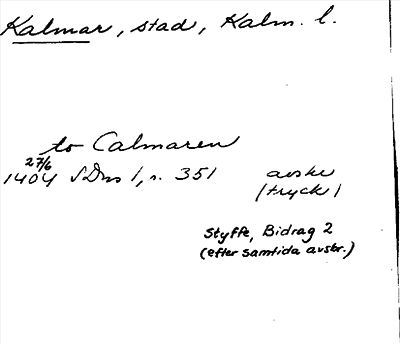 Kalmar, stad, Kalm. l.
to Calmaren
27/6
1404 SDns 1, n. 351 avskr
(tryck)
Styffe, Bidrag 2
(efter samtida avskr.)